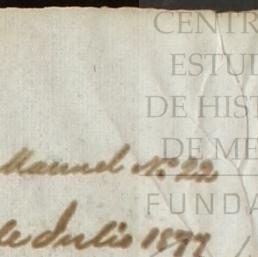 CENTR
ESTUD
DE HIST
DE ME
FUNDA
Manuel No. 22
de Julio 1877